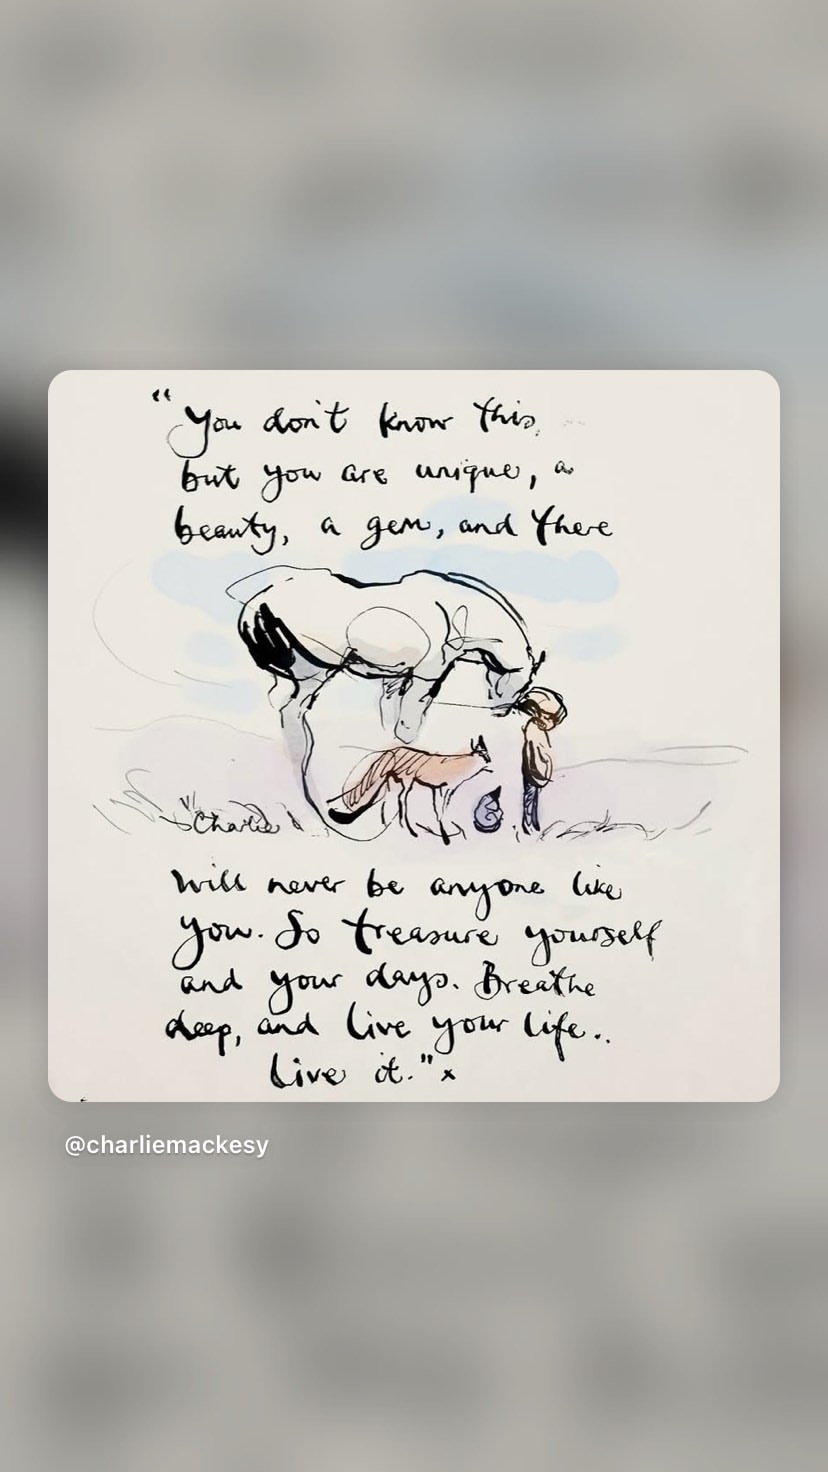 “You don't know this,
but you are unique, a
beauty, a gem, and there
"Charlie
will never be anyone like
you. So treasure yourself
and your days. Breathe
deep, and live your life..
Live it." x
@charliemackesy